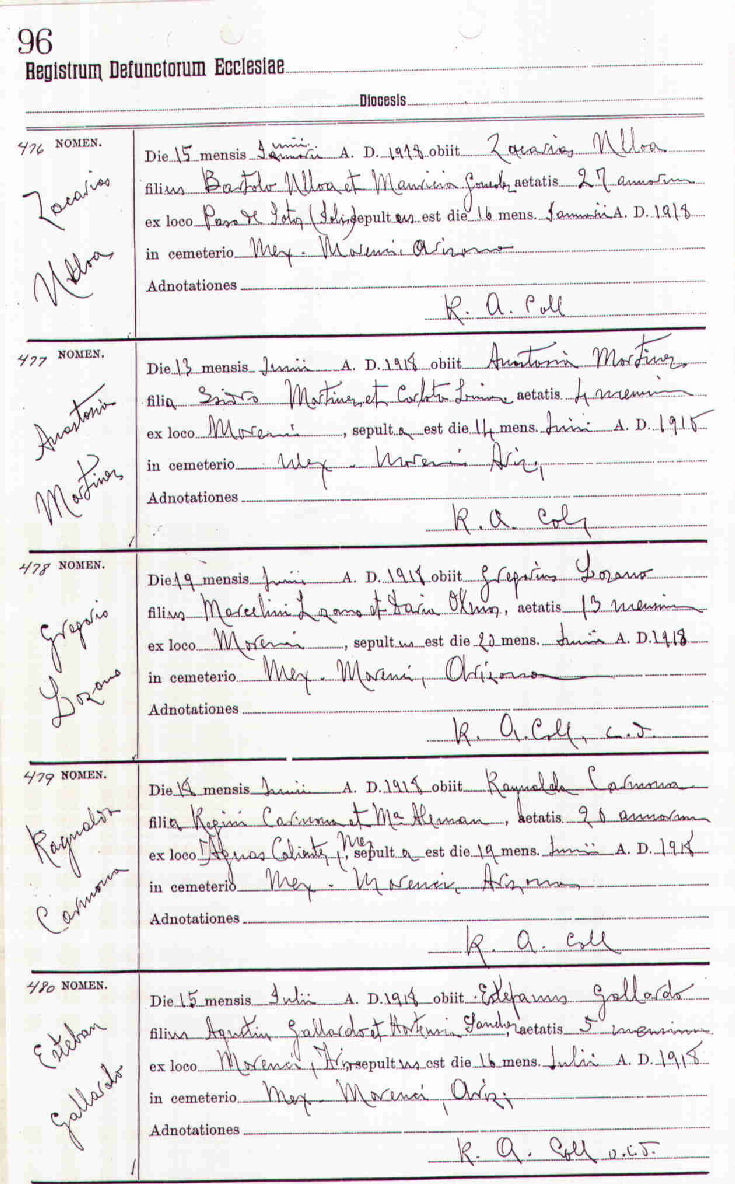 96
Registrum Defunctorum Ecclesiae
Diocesis
476 NOMEN.
Zacarias
Ulloa
Die 15 mensis Junii A. D. 1918 obiit Zacarias Ulloa
filius Bartolo Ulloa et Mauricia aetatis 27 annorum
ex loco Paso de Soto sepultus est die 16 mens. A. D. 1918
in cemeterio Mex. Morenci, Arizona
Adnotationes
R. A. Coll
477 NOMEN.
Anastasia
Martinez
Die 13 mensis Junii A. D. 1918 obiit Anastasia Martinez
filia Isidro Martinez et Carlota aetatis 4 mensium
ex loco Morenci, sepulta est die 14 mens. Junii A. D. 1918
in cemeterio Mex. Morenci Ariz,
Adnotationes
R. A. Coll
478 NOMEN.
Gregorio
Lozano
Die 19 mensis Junii A. D. 1918 obiit Gregorius Lozano
filius Marcelini Lozano et Maria aetatis 13 mensium
ex loco Morenci, sepultus est die 20 mens. Junii A. D. 1918
in cemeterio Mex. Morenci, Arizona
Adnotationes
R. A. Coll,
479 NOMEN.
Raynalda
Carmona
Die 18 mensis Junii A. D. 1918 obiit Raynalda Carmona
filia Regini Carmona et Ma Aleman, aetatis 20 annorum
ex loco Aguas Caliente, Mex sepulta est die 19 mens. Junii A. D. 1918
in cemeterio Mex. Morenci, Arizona
Adnotationes
R. A. Coll
480 NOMEN.
Esteban
Gallardo
Die 15 mensis Julii A. D. 1918 obiit Estefanus Gallardo
filius Agustin Gallardo et Hortensia aetatis 5 mensium
ex loco Morenci, Ariz sepultus est die 16 mens. Julii A. D. 1918
in cemeterio Mex Morenci, Ariz,
Adnotationes
R. A. Coll